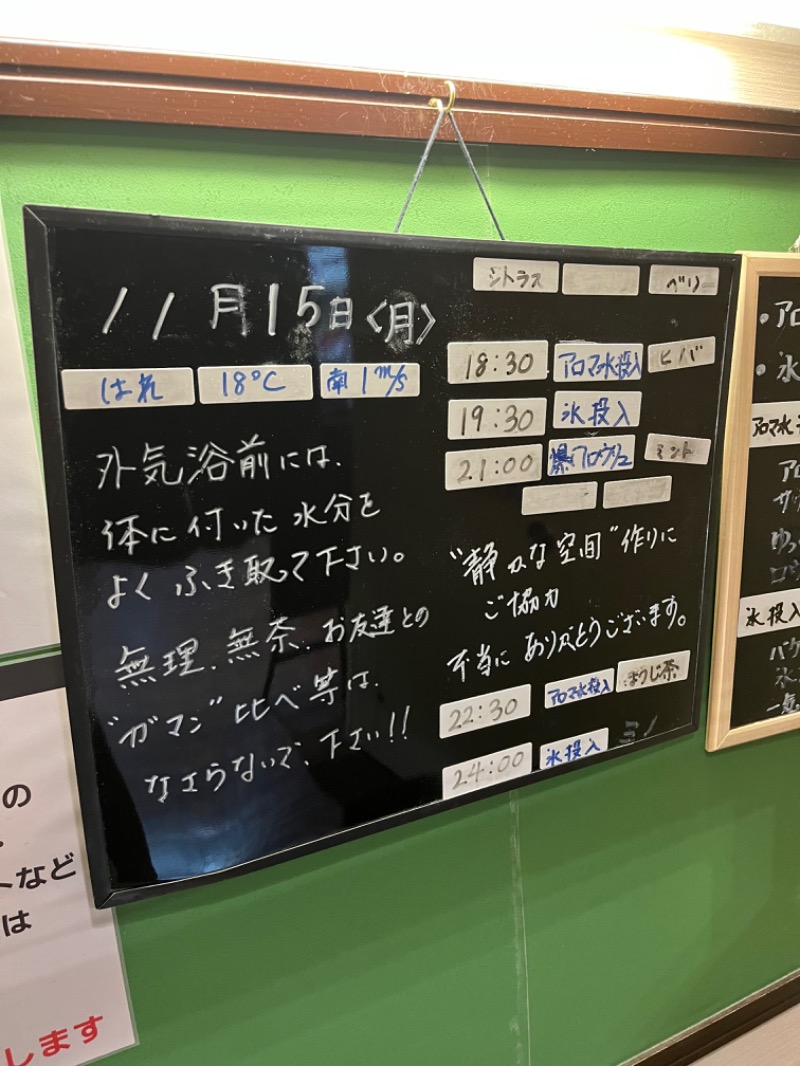 11月15日〈月〉
はれ 18℃ 南1m/s
外気浴前には、
体に付いた水分を
よくふき取って下さい。
無理、無茶、お友達との
"ガマン"比べ等は、
なさらないで、下さい!!
シトラス
18:30 アロマ水投入 ヒバ
19:30 氷投入
21:00 爆アロウリュ ミント
"静かな空間"作りに
ご協力
本当にありがとうございます。
22:30 アロマ水投入 ほうじ茶
24:00 氷投入
・アロ
・氷
アロマ水
アロ
サッ
ゆっ
氷投入
バケ
一気
の
など
は
します